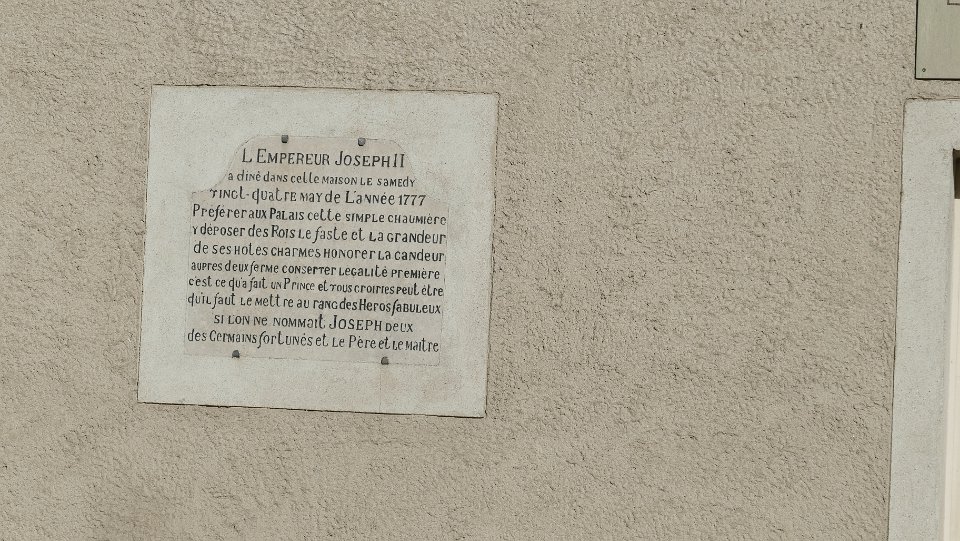 L'EMPEREUR JOSEPH II
a diné dans cette MAISON LE SAMEDY
VINGT-quatre MAY de L'ANNÉE 1777
Préférer AUX PALAIS cette SIMPLE CHAUMIÈRE
Y déposer des ROIS LE faste et LA GRANDEUR
de SES HOTES CHARMES HONORER LA CANDEUR
AUPRES deux ferme CONSERVER LEGALITÉ PREMIÈRE
c'est ce qu'a fait UN PRINCE et VOUS CROIRIES PEUT ÊTRE
qu'il faut LE METTRE AU RANG des HEROS fABULEUX
SI L'ON NE NOMMAIT JOSEPH DEUX
des GERMAINS fORTUNÉS et LE PÈRE et LE MAITRE